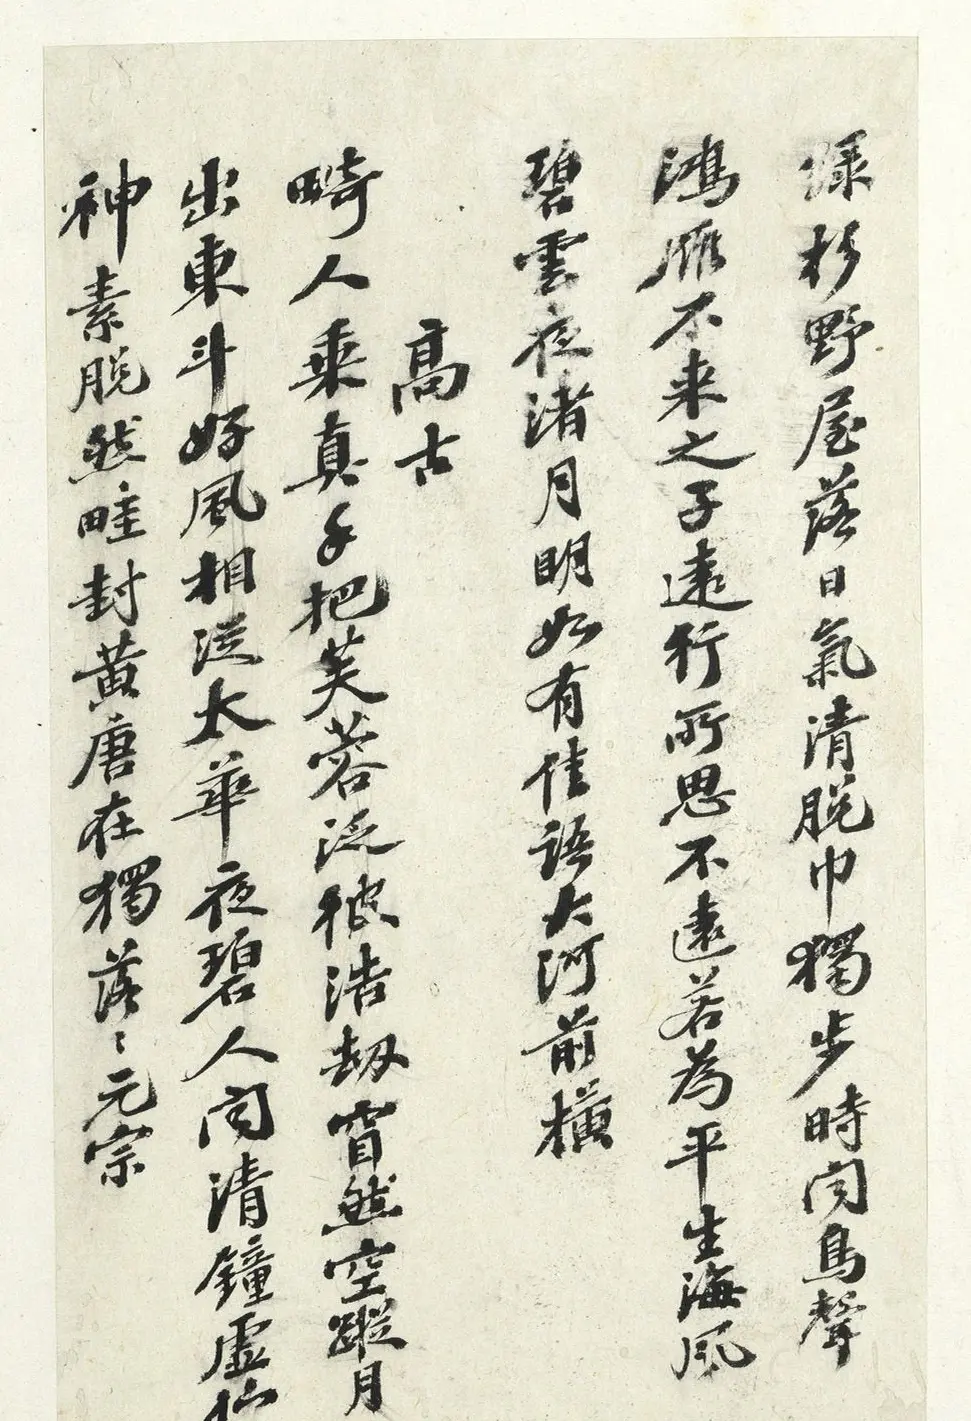 綠杉野屋落日氣清脫巾獨步時聞鳥聲
鴻雁不來之子遠行所思不遠若為平生海風
碧雲夜渚月明如有佳語大河前橫
高古
畸人乘真手把芙蓉泛彼浩劫窅然空蹤月
出東斗好風相從太華夜碧人聞清鐘虛佇
神素脫然畦封黃唐在獨落〻元宗